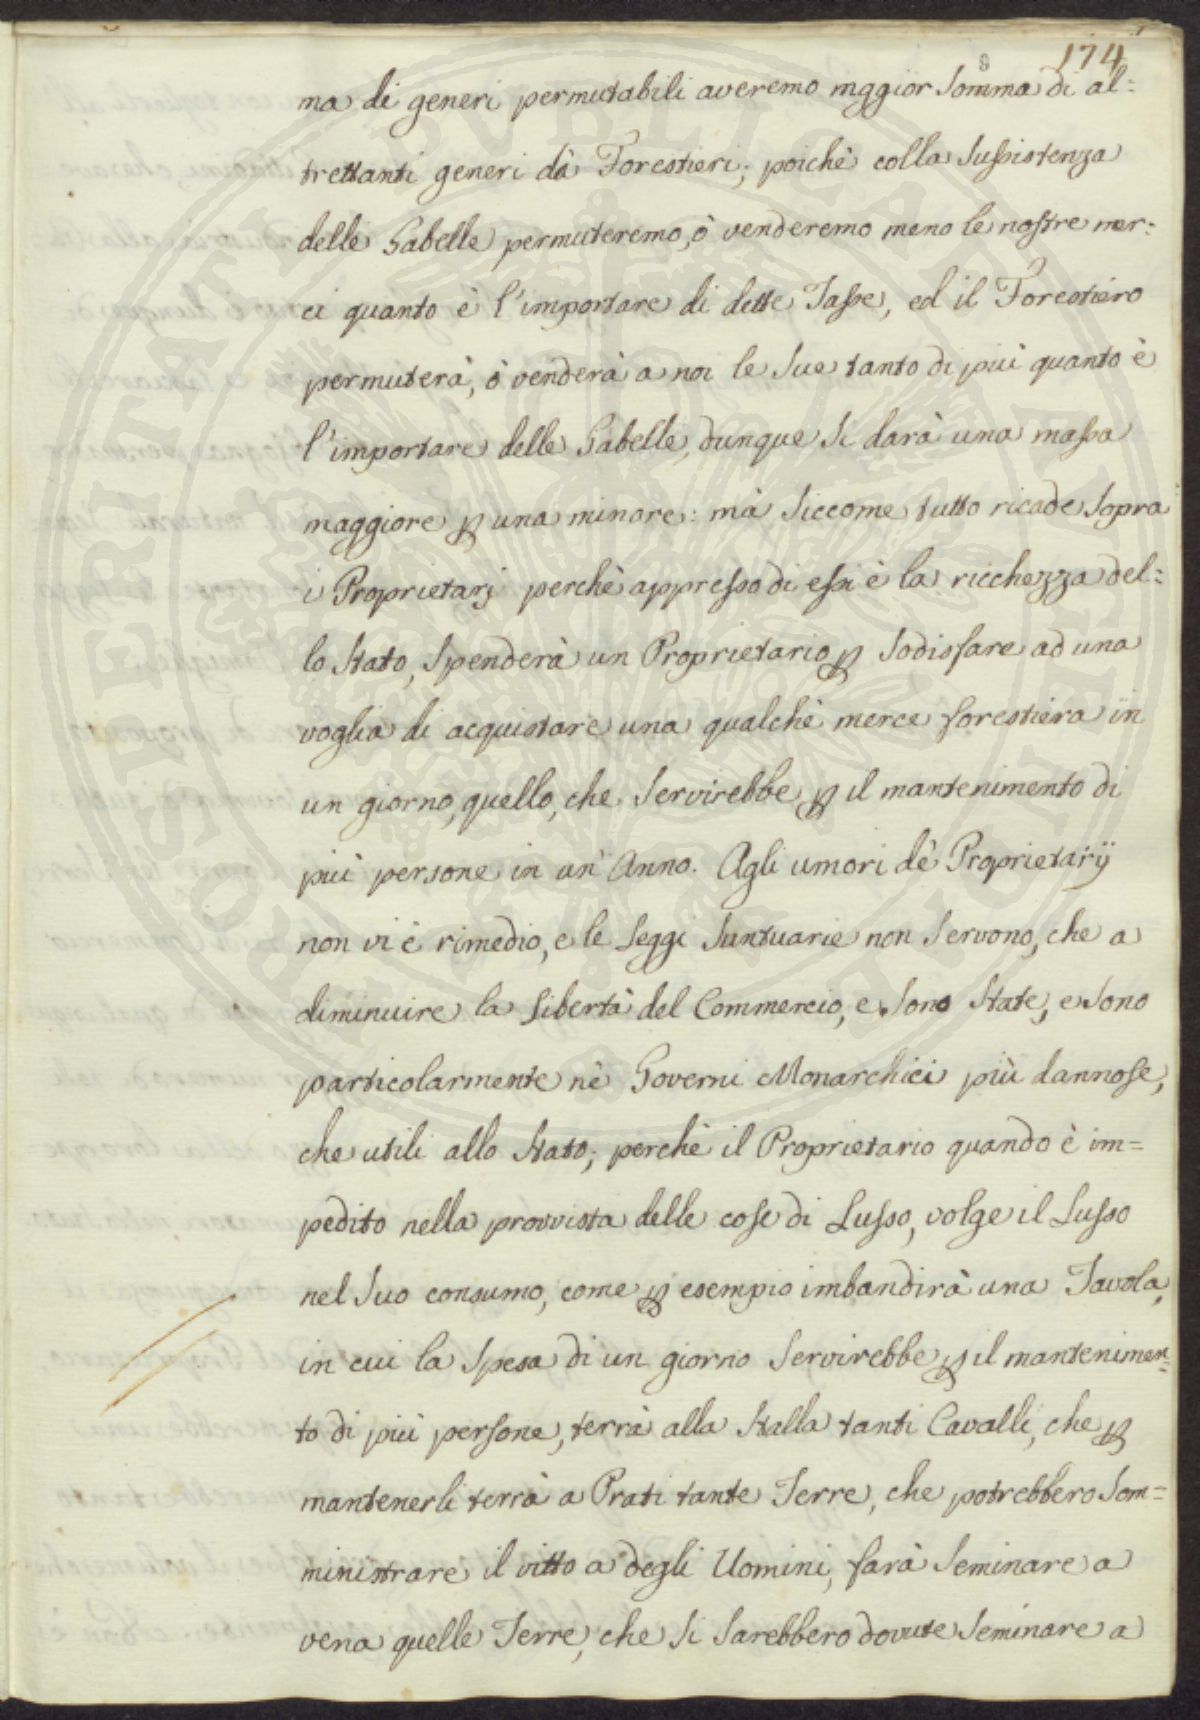 174
8
ma di generi permutabili averemo mggior Somma di al=
trettanti generi dà Forestieri; poichè colla Sussistenza
delle Gabelle permuteremo, ò venderemo meno le nostre mer=
ci quanto è l'importare di dette Tasse, ed il Forestiero
permuterà, ò venderà a noi le Sue tanto di più quanto è
l'importare delle Gabelle, dunque Si darà una massa
maggiore ꝑ una minore: mà Siccome tutto ricade Sopra
i Proprietarj perchè appresso di essi è la ricchezza del=
lo Stato, Spenderà un Proprietario ꝑ Sodisfare ad una
voglia di acquistare una qualchè merce forestiera in
un giorno, quello, che Servirebbe ꝑ il mantenimento di
più persone in un' Anno. Agli umori dè Proprietarij
non vi è rimedio, e le Leggi Suntuarie non Servono, che a
diminuire la Libertà del Commercio, e Sono State, e Sono
particolarmente nè Governi Monarchici più dannose,
che utili allo Stato; perchè il Proprietario quando è im=
pedito nella provvista delle cose di Lusso, volge il Lusso
nel Suo consumo, come ꝑ esempio imbandirà una Tavola,
in cui la Spesa di un giorno Servirebbe ꝑ il mantenimen=
to di più persone, terrà alla Stalla tanti Cavalli, che ꝑ
mantenerli terrà a Prati tante Terre, che potrebbero Som=
ministrare il vitto a degli Uomini, farà Seminare a
vena quelle Terre, che Si Sarebbero dovute Seminare a
PROSPERITATI PUBLICAE AUGENDAE